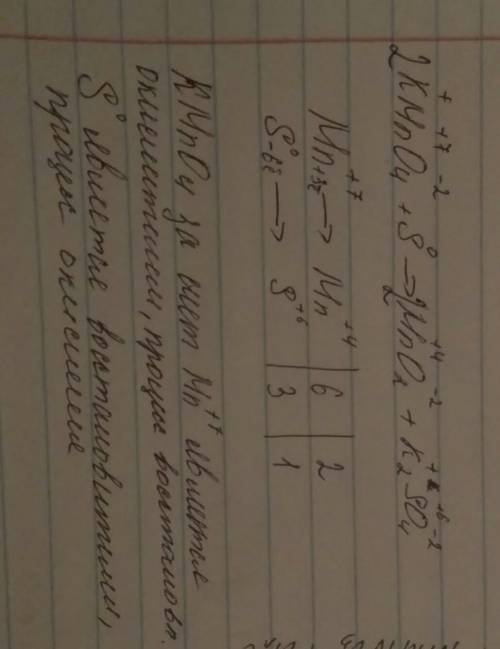 2K⁺Mn⁺⁷O₄⁻² + S⁰ → 2Mn⁺⁴O₂⁻² + K₂⁺S⁺⁶O₄⁻²
Mn⁺⁷ +3ē → Mn⁺⁴ | 6 | 2
S⁰ -6ē → S⁺⁶ | 3 | 1
KMnO₄ за счет Mn⁺⁷ является
окислителем, процес восстановл.
S⁰ является восстановителем,
процес окисление